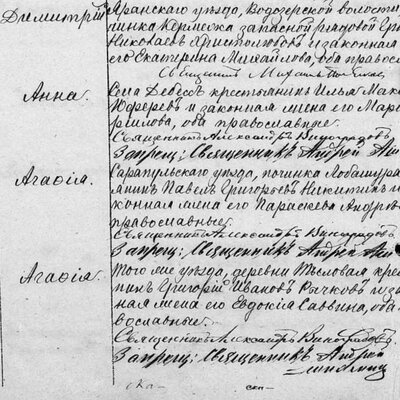 Димитрій Яранскаго уѣзда, Водозерской волости
пинка Кермежа запасной рядовой Гри
Николаевъ Христолюбовъ и законная
его Екатерина Михайлова, оба правос
Священникъ
Анна. Села Дебесъ крестьянинъ Илья Мака
Юферевъ и законная жена его Мар
оба православные.
Священникъ Александръ Виноградовъ
Запрещ: Священникъ Андрей
Агафія. Сарапульскаго уѣзда, починка
янинъ Павелъ Григорьевъ Никитинъ и
конная жена его Параскева Андр
православные.
Священникъ Александръ Виноградовъ
Запрещ: Священникъ Андрей
Агафія. Того же уѣзда, деревни Тыловая крес
нинъ Григорій Ивановъ Рычковъ и за
ная жена его Евдокія Саввина, оба
вославные.
Священникъ Александръ Виноградовъ
Запрещ: Священникъ Андрей